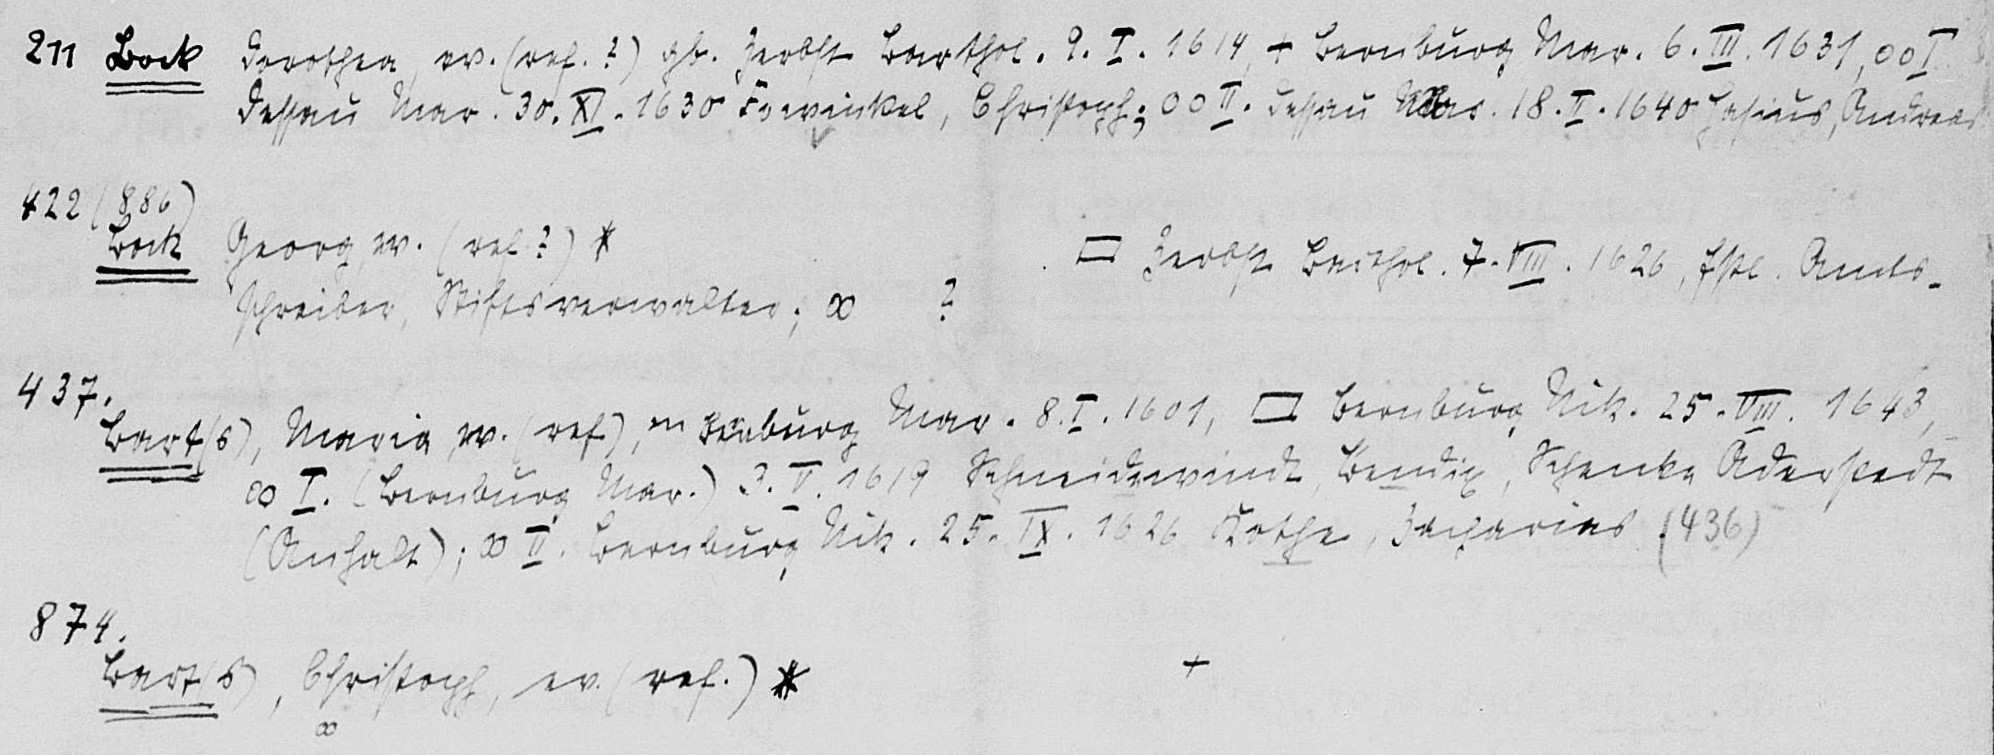 211 Bock Dorothea, ev. (ref.?) gb. Zerbst Barthol. 9. I. 1614, + Bernburg Mar. 6. III. 1631, oo I
Dessau Mar. 30. XI. 1630 Christoph; OO II. Dessau Mar. 18. I. 1640 Hasius, Andreas
422 (886)
Bock Georg, ev. (ref?) * □ Zerbst Barthol. 7. VIII. 1626, fstl. Amts-
schreiber, Stiftsverwalter; ∞ ?
437.
Bart(s), Maria, ev. (ref), ~ Bernburg Mar. 8. I. 1601, □ Bernburg Nik. 25. VIII. 1643,
∞ I. (Bernburg Mar.) 3. V. 1619 Schneidewindt, Bendix, Schenke Aderstedt
(Anhalt); ∞ II. Bernburg Nik. 25. IX. 1626 Kothe, Zacharias (436)
874.
Bart(s), Christoph, ev. (ref.) * +
∞